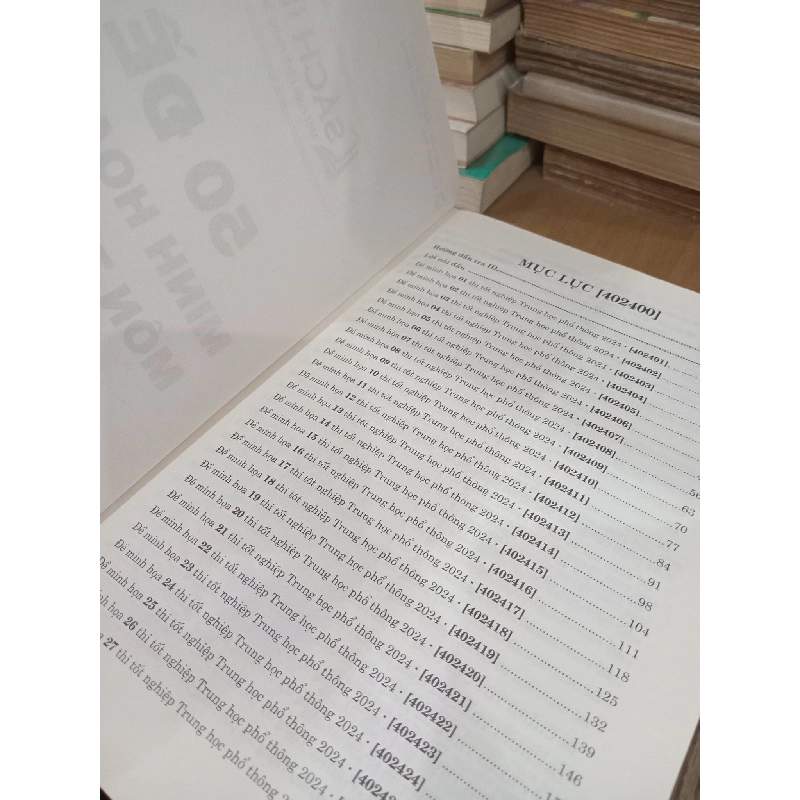 MỤC LỤC [402400]
Hướng dẫn tra ID
Lời nói đầu
Đề minh họa 01 thi tốt nghiệp Trung học phổ thông 2024 - [402401]
Đề minh họa 02 thi tốt nghiệp Trung học phổ thông 2024 - [402402]
Đề minh họa 03 thi tốt nghiệp Trung học phổ thông 2024 - [402403]
Đề minh họa 04 thi tốt nghiệp Trung học phổ thông 2024 - [402404]
Đề minh họa 05 thi tốt nghiệp Trung học phổ thông 2024 - [402405]
Đề minh họa 06 thi tốt nghiệp Trung học phổ thông 2024 - [402406]
Đề minh họa 07 thi tốt nghiệp Trung học phổ thông 2024 - [402407]
Đề minh họa 08 thi tốt nghiệp Trung học phổ thông 2024 - [402408] 56
Đề minh họa 09 thi tốt nghiệp Trung học phổ thông 2024 - [402409] 63
Đề minh họa 10 thi tốt nghiệp Trung học phổ thông 2024 - [402410] 70
Đề minh họa 11 thi tốt nghiệp Trung học phổ thông 2024 - [402411] 77
Đề minh họa 12 thi tốt nghiệp Trung học phổ thông 2024 - [402412] 84
Đề minh họa 13 thi tốt nghiệp Trung học phổ thông 2024 - [402413] 91
Đề minh họa 14 thi tốt nghiệp Trung học phổ thông 2024 - [402414] 98
Đề minh họa 15 thi tốt nghiệp Trung học phổ thông 2024 - [402415] 104
Đề minh họa 16 thi tốt nghiệp Trung học phổ thông 2024 - [402416] 111
Đề minh họa 17 thi tốt nghiệp Trung học phổ thông 2024 - [402417] 118
Đề minh họa 18 thi tốt nghiệp Trung học phổ thông 2024 - [402418] 125
Đề minh họa 19 thi tốt nghiệp Trung học phổ thông 2024 - [402419] 132
Đề minh họa 20 thi tốt nghiệp Trung học phổ thông 2024 - [402420] 139
Đề minh họa 21 thi tốt nghiệp Trung học phổ thông 2024 - [402421] 146
Đề minh họa 22 thi tốt nghiệp Trung học phổ thông 2024 - [402422]
Đề minh họa 23 thi tốt nghiệp Trung học phổ thông 2024 - [402423]
Đề minh họa 24 thi tốt nghiệp Trung học phổ thông 2024 - [402424]
minh họa 25 thi tốt nghiệp Trung học phổ thông 2024 -
họa 26 thi tốt nghiệp Trung học phổ thông 2024
27 thi tốt nghiệp Trung học phổ thông